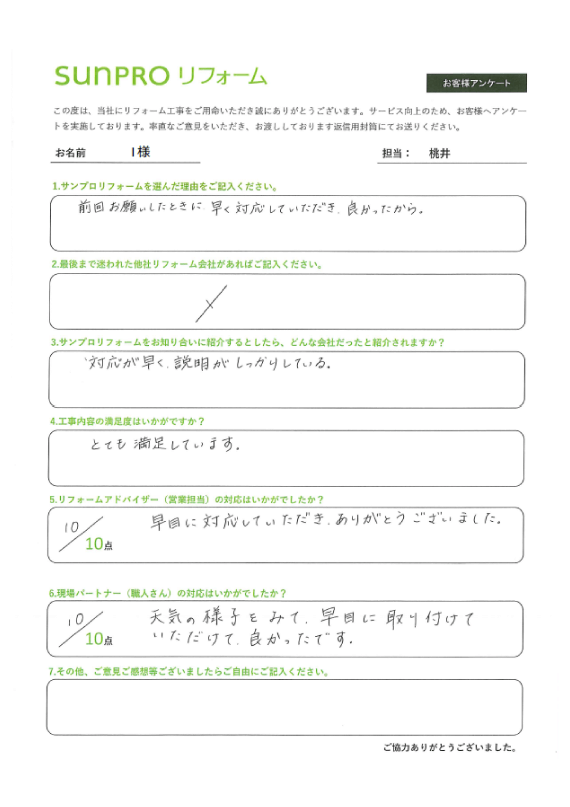 SUNPRO リフォーム
お客様アンケート
この度は、当社にリフォーム工事をご用命いただき誠にありがとうございます。サービス向上のため、お客様へアンケー
トを実施しております。率直なご意見をいただき、お渡ししております返信用封筒にてお送りください。
お名前 I様 担当： 桃井
1.サンプロリフォームを選んだ理由をご記入ください。
前回お願いしたときに、早く対応していただき、良かったから。
2.最後まで迷われた他社リフォーム会社があればご記入ください。
3.サンプロリフォームをお知り合いに紹介するとしたら、どんな会社だったと紹介されますか？
対応が早く、説明がしっかりしている。
4.工事内容の満足度はいかがですか？
とても満足しています。
5.リフォームアドバイザー（営業担当）の対応はいかがでしたか？
10／10点 早目に対応していただき、ありがとうございました。
6.現場パートナー（職人さん）の対応はいかがでしたか？
10／10点 天気の様子をみて、早目に取り付けて
いただけて、良かったです。
7.その他、ご意見ご感想等ございましたらご自由にご記入ください。
ご協力ありがとうございました。